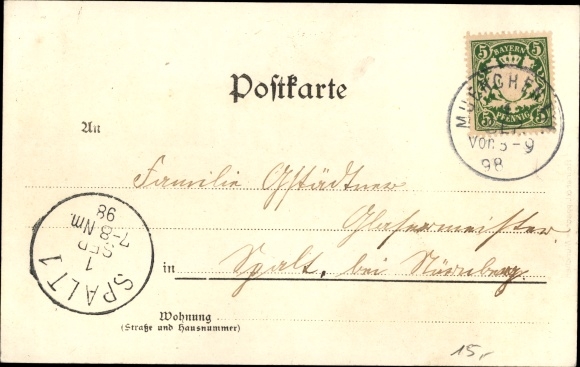 5 BAYERN 5
5 PFENNIG 5
MUENCHEN
1 SEP.
VOR. 8-9
98
Postkarte
An
Familie Gstädtner
Glasermeister
in Spalt, bei Nürnberg.
SPALT 1
1
SEP
7-8 Nm.
98
Wohnung
(Straße und Hausnummer)
15,-